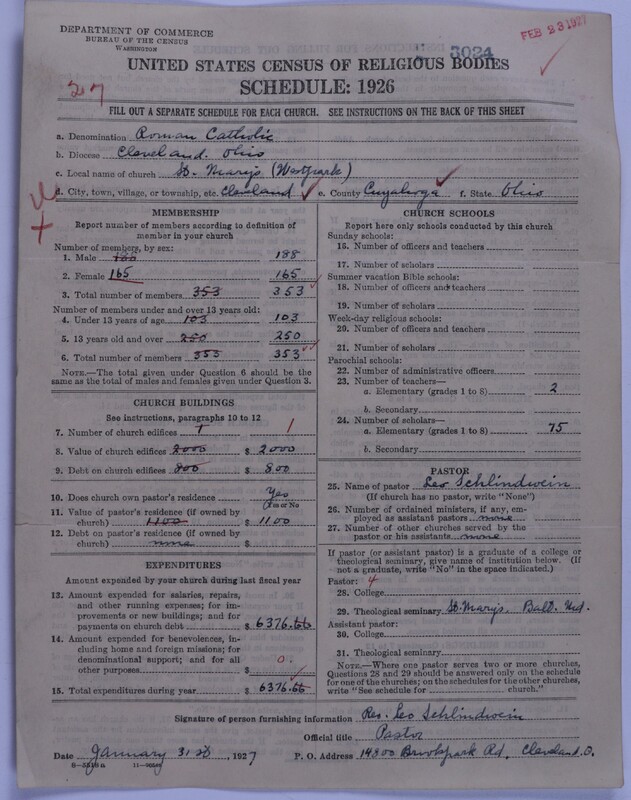 DEPARTMENT OF COMMERCE
BUREAU OF THE CENSUS
WASHINGTON
3024
FEB 23 1927
UNITED STATES CENSUS OF RELIGIOUS BODIES
SCHEDULE: 1926
27
FILL OUT A SEPARATE SCHEDULE FOR EACH CHURCH. SEE INSTRUCTIONS ON THE BACK OF THIS SHEET
a. Denomination Roman Catholic
b. Diocese Cleveland. Ohio
c. Local name of church St. Marys (Westpark)
d. City, town, village, or township, etc. Cleveland e. County Cuyahoga f. State Ohio
MEMBERSHIP
Report number of members according to definition of
member in your church
Number of members, by sex:
1. Male 188 188
2. Female 165 165
3. Total number of members 353 353
Number of members under and over 13 years old:
4. Under 13 years of age 103 103
5. 13 years old and over 250 250
6. Total number of members 353 353
NOTE.—The total given under Question 6 should be
same as the total of males and females given under Question 3.
CHURCH BUILDINGS
See instructions, paragraphs 10 to 12
7. Number of church edifices 1 1
8. Value of church edifices 2000 $ 2000
9. Debt on church edifices 800 $ 800
10. Does church own pastor's residence Yes
(Yes or No)
11. Value of pastor's residence (if owned by
church) 1100 $ 1100
12. Debt on pastor's residence (if owned by
church) none $
EXPENDITURES
Amount expended by your church during last fiscal year
13. Amount expended for salaries, repairs,
and other running expenses; for im-
provements or new buildings; and for
payments on church debt $ 6376.66
14. Amount expended for benevolences, in-
cluding home and foreign missions; for
denominational support; and for all
other purposes $ 0.
15. Total expenditures during year $ 6376.66
CHURCH SCHOOLS
Report here only schools conducted by this church
Sunday schools:
16. Number of officers and teachers
17. Number of scholars
Summer vacation Bible schools:
18. Number of officers and teachers
19. Number of scholars
Week-day religious schools:
20. Number of officers and teachers
21. Number of scholars
Parochial schools:
22. Number of administrative officers
23. Number of teachers—
a. Elementary (grades 1 to 8) 2
b. Secondary
24. Number of scholars—
a. Elementary (grades 1 to 8) 75
b. Secondary
PASTOR
25. Name of pastor Leo Schlindwein
(If church has no pastor, write "None")
26. Number of ordained ministers, if any, em-
ployed as assistant pastors none
27. Number of other churches served by the
pastor or his assistants none
If pastor (or assistant pastor) is a graduate of a college or
theological seminary, give name of institution below. (If
not a graduate, write "No" in the space indicated.)
Pastor: 4
28. College
29. Theological seminary St. Marys, Balt. Md.
Assistant pastor:
30. College
31. Theological seminary
NOTE.—Where one pastor serves two or more churches,
Questions 28 and 29 should be answered only on the schedule
for one of the churches; on the schedules for the other churches,
write "See schedule for church."
Signature of person furnishing information Rev. Leo Schlindwein
Official title Pastor
Date January 31st, 1927 P. O. Address 14300 Brookpark Rd, Cleveland. O.